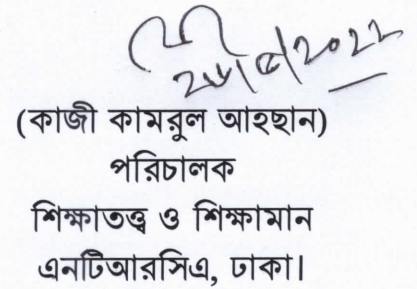 (কাজী কামরুল আহছান)
পরিচালক
শিক্ষাতত্ত্ব ও শিক্ষামান
এনটিআরসিএ, ঢাকা।